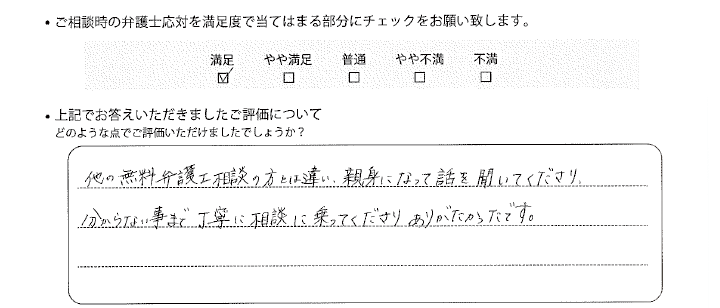 • ご相談時の弁護士応対を満足度で当てはまる部分にチェックをお願い致します。
満足 やや満足 普通 やや不満 不満
☑ □ □ □ □
• 上記でお答えいただきましたご評価について
どのような点でご評価いただけましたでしょうか？
他の無料弁護士相談の方とは違い、親身になって話を聞いてくださり、
分からない事まで丁寧に相談に乗ってくださりありがたかったです。